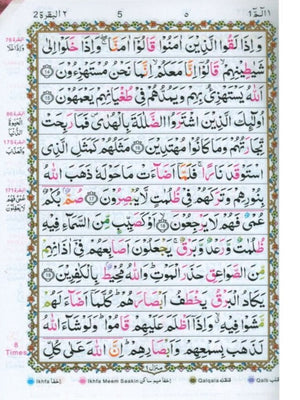 ٢ البقرة 2
5
٥
١ الٓمّٓ
وَاِذَا لَقُوا الَّذِيْنَ اٰمَنُوْا قَالُوْٓا اٰمَنَّا ۚ وَاِذَا خَلَوْا اِلٰى
شَيٰطِيْنِهِمْ ۙ قَالُوْٓا اِنَّا مَعَكُمْ ۙ اِنَّمَا نَحْنُ مُسْتَهْزِءُوْنَ ﴿١٤﴾
اَللّٰهُ يَسْتَهْزِئُ بِهِمْ وَيَمُدُّهُمْ فِيْ طُغْيَانِهِمْ يَعْمَهُوْنَ ﴿١٥﴾
اُولٰٓئِكَ الَّذِيْنَ اشْتَرَوُا الضَّلٰلَةَ بِالْهُدٰى ۪ فَمَا رَبِحَتْ
تِّجَارَتُهُمْ وَمَا كَانُوْا مُهْتَدِيْنَ ﴿١٦﴾ مَثَلُهُمْ كَمَثَلِ الَّذِي
اسْتَوْقَدَ نَارًا ۚ فَلَمَّآ اَضَآءَتْ مَا حَوْلَهٗ ذَهَبَ اللّٰهُ
بِنُوْرِهِمْ وَتَرَكَهُمْ فِيْ ظُلُمٰتٍ لَّا يُبْصِرُوْنَ ﴿١٧﴾ صُمٌّۢ بُكْمٌ
عُمْيٌ فَهُمْ لَا يَرْجِعُوْنَ ﴿١٨﴾ اَوْ كَصَيِّبٍ مِّنَ السَّمَآءِ فِيْهِ
ظُلُمٰتٌ وَّرَعْدٌ وَّبَرْقٌ ۚ يَجْعَلُوْنَ اَصَابِعَهُمْ فِيْٓ اٰذَانِهِمْ
مِّنَ الصَّوَاعِقِ حَذَرَ الْمَوْتِ ۗ وَاللّٰهُ مُحِيْطٌۢ بِالْكٰفِرِيْنَ ﴿١٩﴾
يَكَادُ الْبَرْقُ يَخْطَفُ اَبْصَارَهُمْ ۗ كُلَّمَآ اَضَآءَ لَهُمْ
مَّشَوْا فِيْهِ ۙ وَاِذَآ اَظْلَمَ عَلَيْهِمْ قَامُوْا ۗ وَلَوْ شَآءَ اللّٰهُ
لَذَهَبَ بِسَمْعِهِمْ وَاَبْصَارِهِمْ ۗ اِنَّ اللّٰهَ عَلٰى كُلِّ
8
Times
Ikhfa اخفا
Ikhfa Meem Saakin
Qalqala قلقله
Qalb قلب